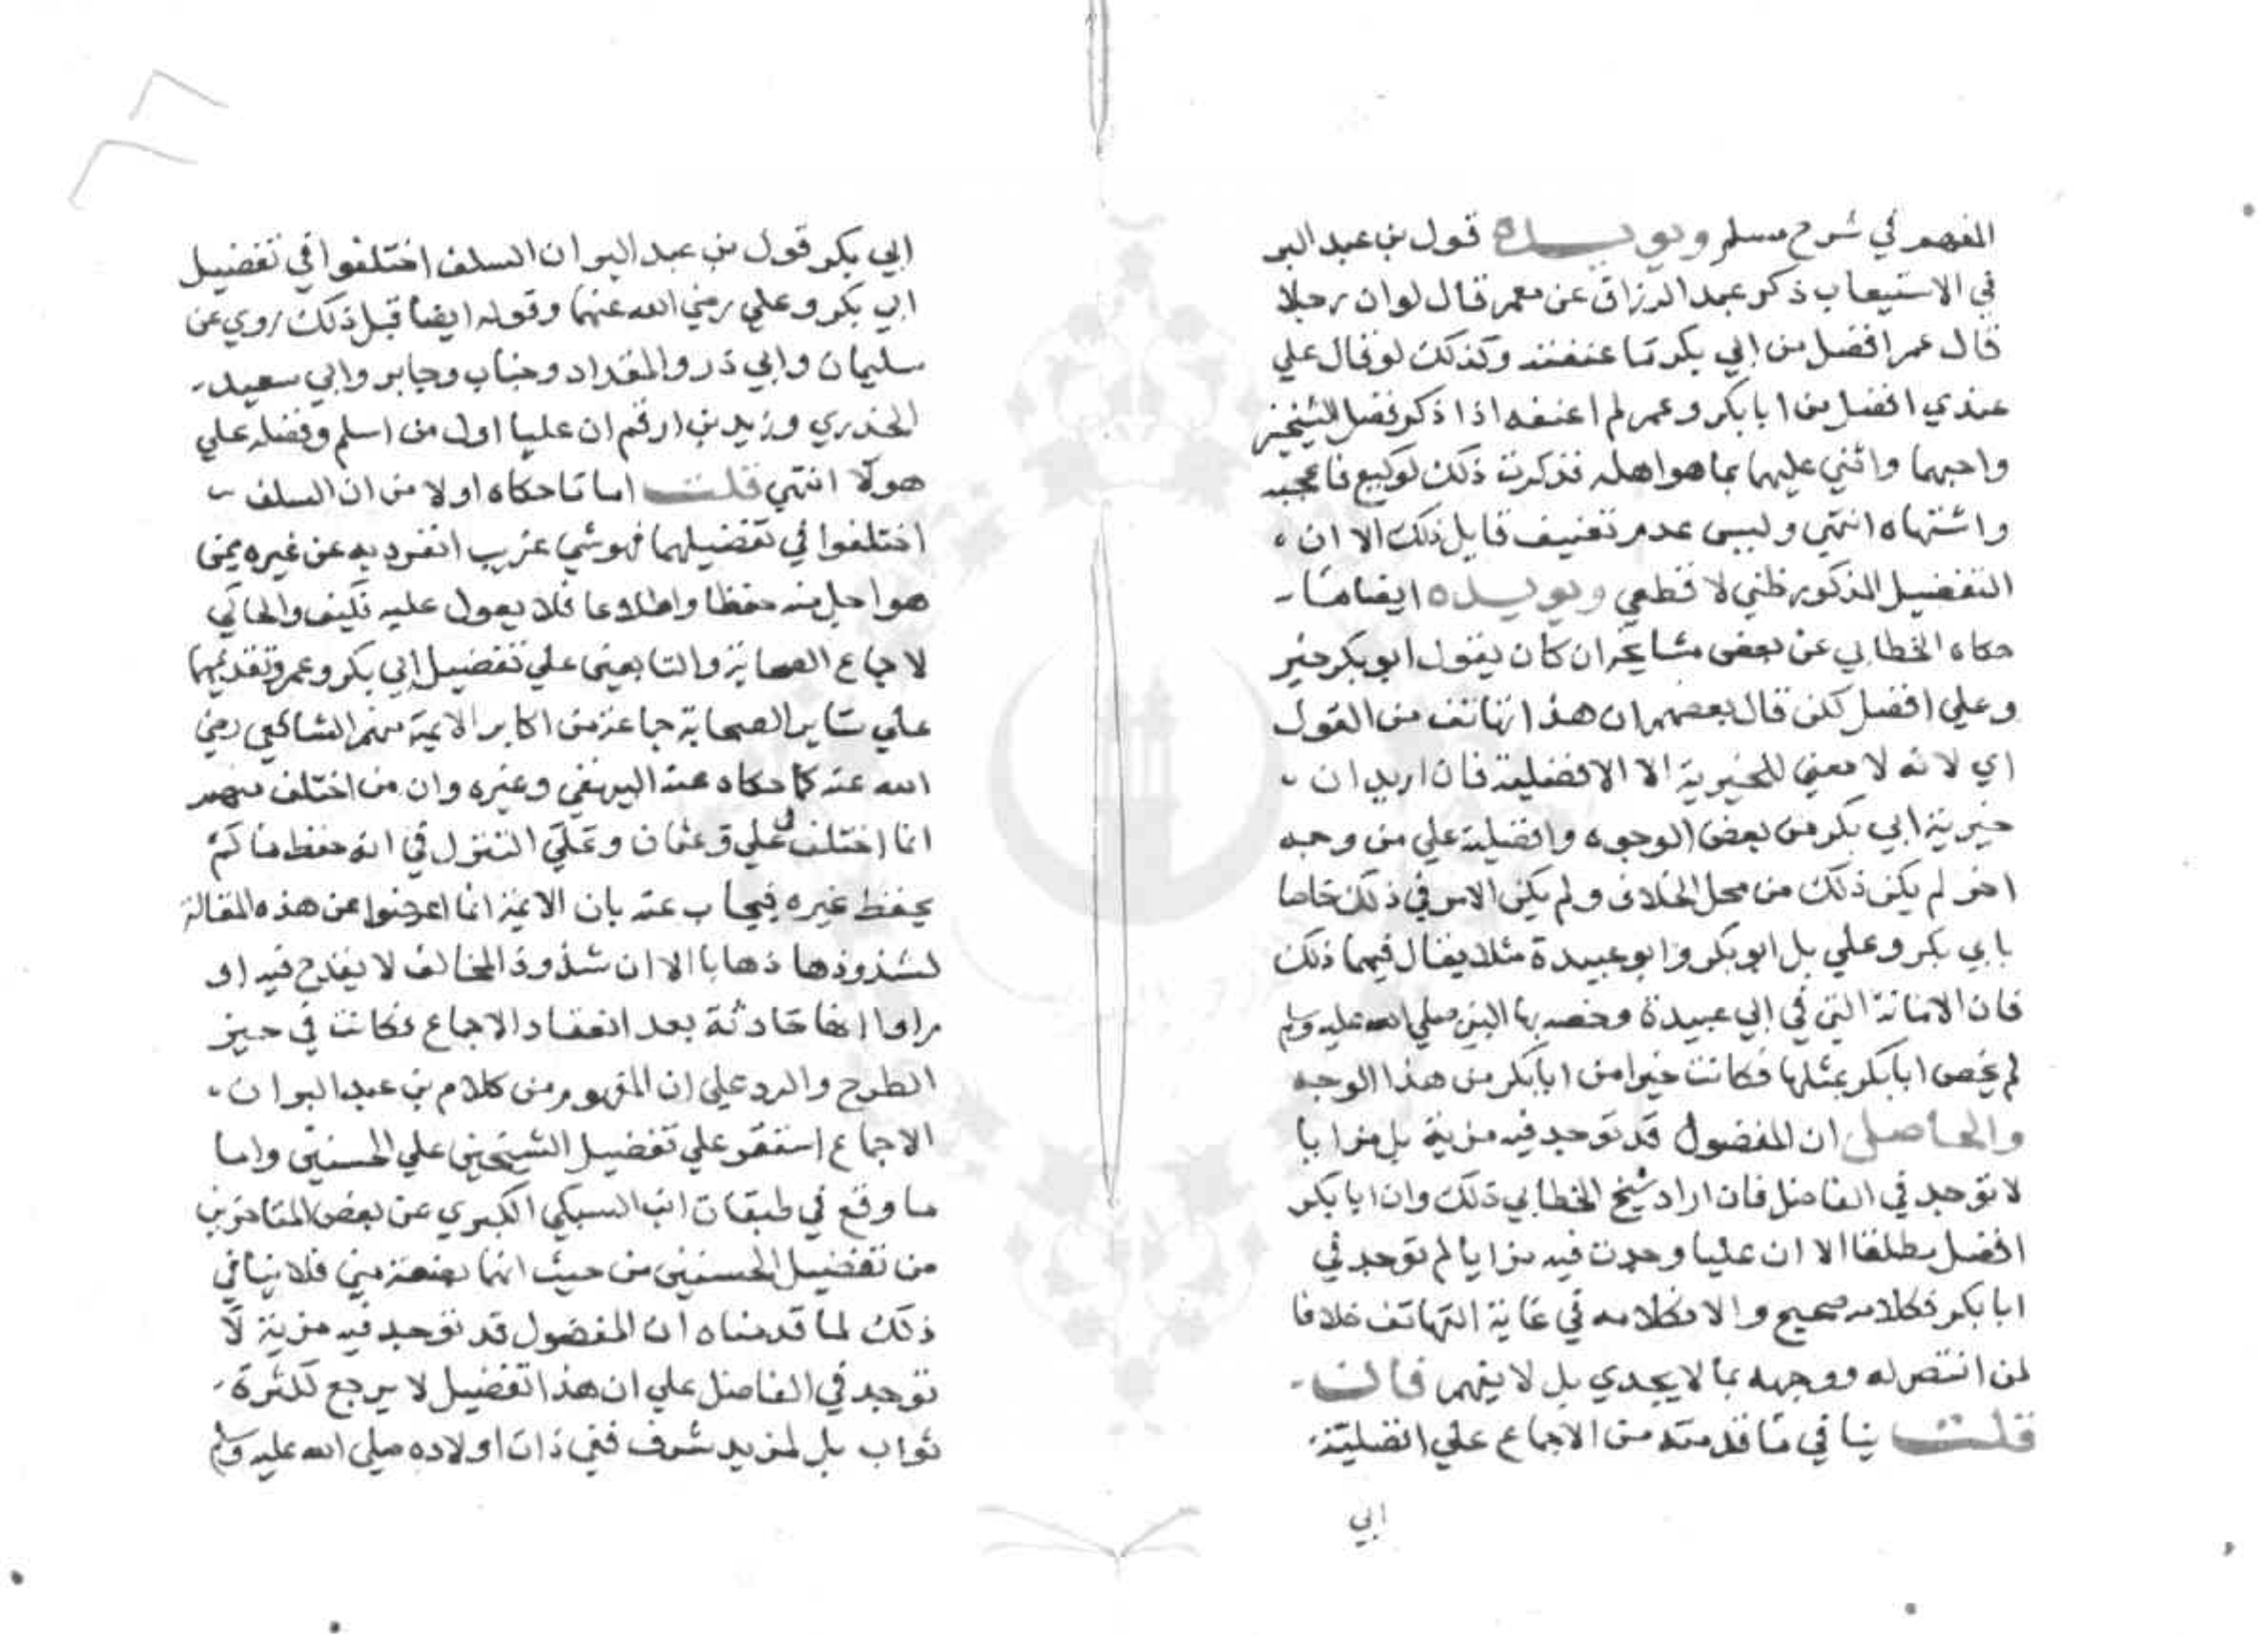 المفهم في شرح مسلم ويويده قول بن عبد البر
في الاستيعاب ذكر عبد الرزاق عن معمر قال لو ان رجلا
قال عمر افضل من ابي بكر ما عنفته وكذلك لو قال علي
عندي افضل من ابا بكر وعمر لم اعنفه اذا ذكر فضل الشيخين
واحبهما واثني عليهما بما هو اهله فذكرت ذلك لوكيع فاعجبه
واشتهاه انتهي وليس عدم تعنيف قايل ذلك الا ان
التفضيل المذكور ظني لا قطعي ويويده ايضا ما
حكاه الخطابي عن بعض مشايخه ان كان يقول ابو بكر خير
وعلي افضل لكن قال بعضهم ان هذا تهافت من القول
اي لانه لا معني للخيرية الا الافضلية فان اريد ان
خيرية ابي بكر من بعض الوجوه وافضلية علي من وجه
اخر لم يكن ذلك من محل الخلاف ولم يكن الامر في ذلك خاصا
بابي بكر وعلي بل ابو بكر وابو عبيدة مثلا يقال فيهما ذلك
فان الامانة التي في ابي عبيدة وخصه بها النبي صلي الله عليه وسلم
لم يخص ابا بكر بمثلها فكانت خيرا من ابا بكر من هذا الوجه
والحاصل ان المفضول قد توجد فيه مزية بل مزايا
لا توجد في الفاضل فان اراد شيخ الخطابي ذلك وان ابا بكر
افضل مطلقا الا ان عليا وجدت فيه مزايا لم توجد في
ابا بكر فكلامه صحيح والا فكلامه في غاية التهافت خلافا
لمن انتصر له ووجهه بما لا يجدي بل لا يفهم فان
قلت ينافي ما قدمته من الاجماع علي افضلية
ابي
ابي بكر قول بن عبد البر ان السلف اختلفوا في تفضيل
ابي بكر وعلي رضي الله عنهما وقوله ايضا قبل ذلك روي عن
سليمان وابي ذر والمقداد وخباب وجابر وابي سعيد
الخدري وزيد بن ارقم ان عليا اول من اسلم وفضله علي
هولا انتهي قلت اما ما حكاه اولا من ان السلف
اختلفوا في تفضيلهما فهو شي غريب انفرد به عن غيره ممن
هو اجل منه حفظا واطلاعا فلا يعول عليه فكيف والحاكي
لاجماع الصحابة والتابعين علي تفضيل ابي بكر وعمر وتقديمهما
علي ساير الصحابة جماعة من اكابر الايمة منهم الشافعي رضي
الله عنه كما حكاه عنه البيهقي وغيره وان من اختلف منهم
انما اختلف في علي وعثمان وعلي التنزل في انه حفظ ما لم
يحفظ غيره فيجاب عنه بان الايمة انما اعرضوا عن هذه المقالة
لشذوذها ذهابا الا ان شذوذ المخالف لا يقدح فيه او
راوا انها حادثة بعد انعقاد الاجماع فكانت في حيز
الطرح والرد علي ان المفهوم من كلام بن عبد البر ان
الاجماع استقر علي تفضيل الشيخين علي الحسنين واما
ما وقع في طبقات ابن السبكي الكبري عن بعض المتاخرين
من تفضيل الحسنين من حيث انهما بضعة مني فلا ينافي
ذلك لما قدمناه ان المفضول قد توجد فيه مزية لا
توجد في الفاضل علي ان هذا تفضيل لا يرجع لكثرة
ثواب بل لمزيد شرف ففي ذات اولاده صلي الله عليه وسلم